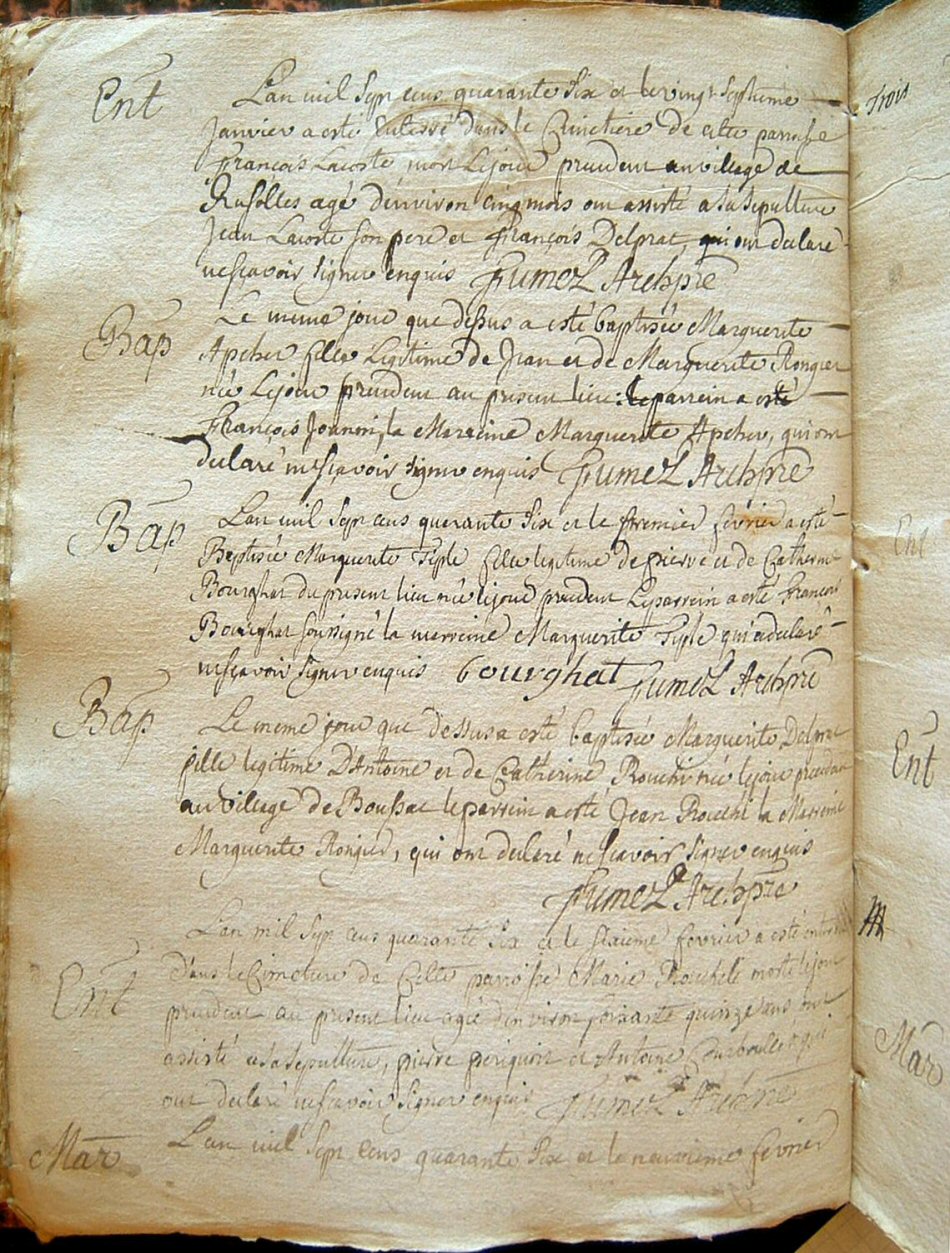 Ent
L'an mil Sept cens quarante Six et le vingt Septieme
Janvier a esté Enterré dans le Cimetiere de cette parroisse
François Lacoste, mort Lejour precedent au village de
agé d'environ cinq mois ont assisté a Sa Sepulture
Jean Lacoste Son pere et François Delprat, qui ont declaré
ne sçavoir Signer enquis Fumel Archpre
Bap
Le meme jour que dessus a esté baptisée Marguerite
Apcher fille Legitime de Jean et de Marguerite Rongier
née Lejour precedent au present lieu: le parrein a esté
François la Marreine Marguerite Apcher, qui ont
declaré ne sçavoir signer enquis Fumel Archpre
Bap
L'an mil Sept cens quarante Six et le premier février a esté
Baptisée Marguerite fille legitime de pierre et de Catherine
Bourghat du present lieu née lejour precedent Le parrein a esté François
Bourghat Soussigné la marreine Marguerite qui a declaré
ne sçavoir signer enquis bourghat Fumel Archpre
Bap
Le meme jour que dessus a esté baptisée Marguerite
fille legitime D'Antoine et de Catherine née lejour precedent
au village de Boussac le parrein a esté Jean la Marreine
Marguerite Rongier, qui ont declaré ne sçavoir signer enquis
Fumel Archpre
Ent
L'an mil Sept cens quarante Six et le Sixieme fevrier a esté enterrée
Dans le Cimetiere de Cette parroisse Marie morte lejour
precedent au present lieu agée d'environ soixante quinze ans ont
assisté a sa sepulture, pierre et Antoine qui
ont declaré ne sçavoir Signer enquis Fumel Archpre
Mar
L'an mil Sept cens quarante Six et le neuvieme fevrier
Trois
Ent
Ent
Mar